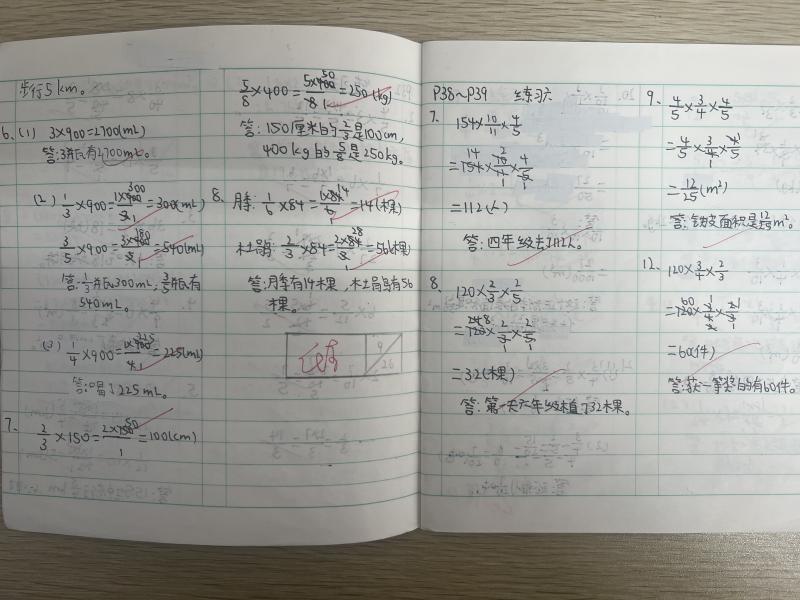 步行5 km。
6、(1) 3×900=2700(mL)
答:3瓶有2700mL。
(2) 1/3×900=1×900/3=300(mL)
3/5×900=3×900/5=540(mL)
答:1/3瓶300mL,3/5瓶有
540mL。
(3) 1/4×900=1×900/4=225(mL)
答:喝了225mL。
7、2/3×150=2×150/3=100(cm)
5/8×400=5×400/8=250(kg)
答:150厘米的2/3是100cm,
400kg的5/8是250kg。
8、月季:1/6×84=1×84/6=14(棵)
杜鹃:2/3×84=2×84/3=56(棵)
答:月季有14棵,杜鹃有56
棵。
9
26
P38~P39 练习六
7、154×10/11×4/5
=154×10/11×4/5
=112(人)
答:四年级去112人。
8、120×2/3×2/5
=120×2/3×2/5
=32(棵)
答:第一天六年级植了32棵。
9、4/5×3/4×4/5
=4/5×3/4×4/5
=12/25(m²)
答:玻面积是12/25m²。
12、120×3/4×2/3
=120×3/4×2/3
=60(件)
答:获一等奖的有60件。